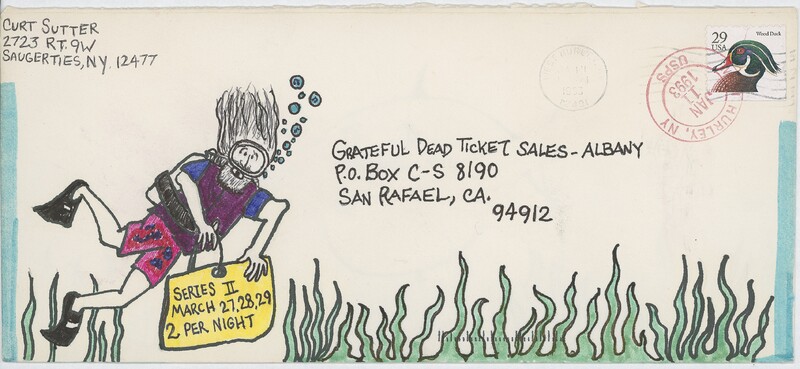 CURT SUTTER
2723 RT. 9W
SAUGERTIES, NY. 12477
29
USA
Wood Duck
HURLEY, NY
JAN
11
1993
USPS
GRATEFUL DEAD TICKET SALES - ALBANY
P.O. BOX C-S 8190
SAN RAFAEL, CA.
94912
SERIES II
MARCH 27,28,29
2 PER NIGHT